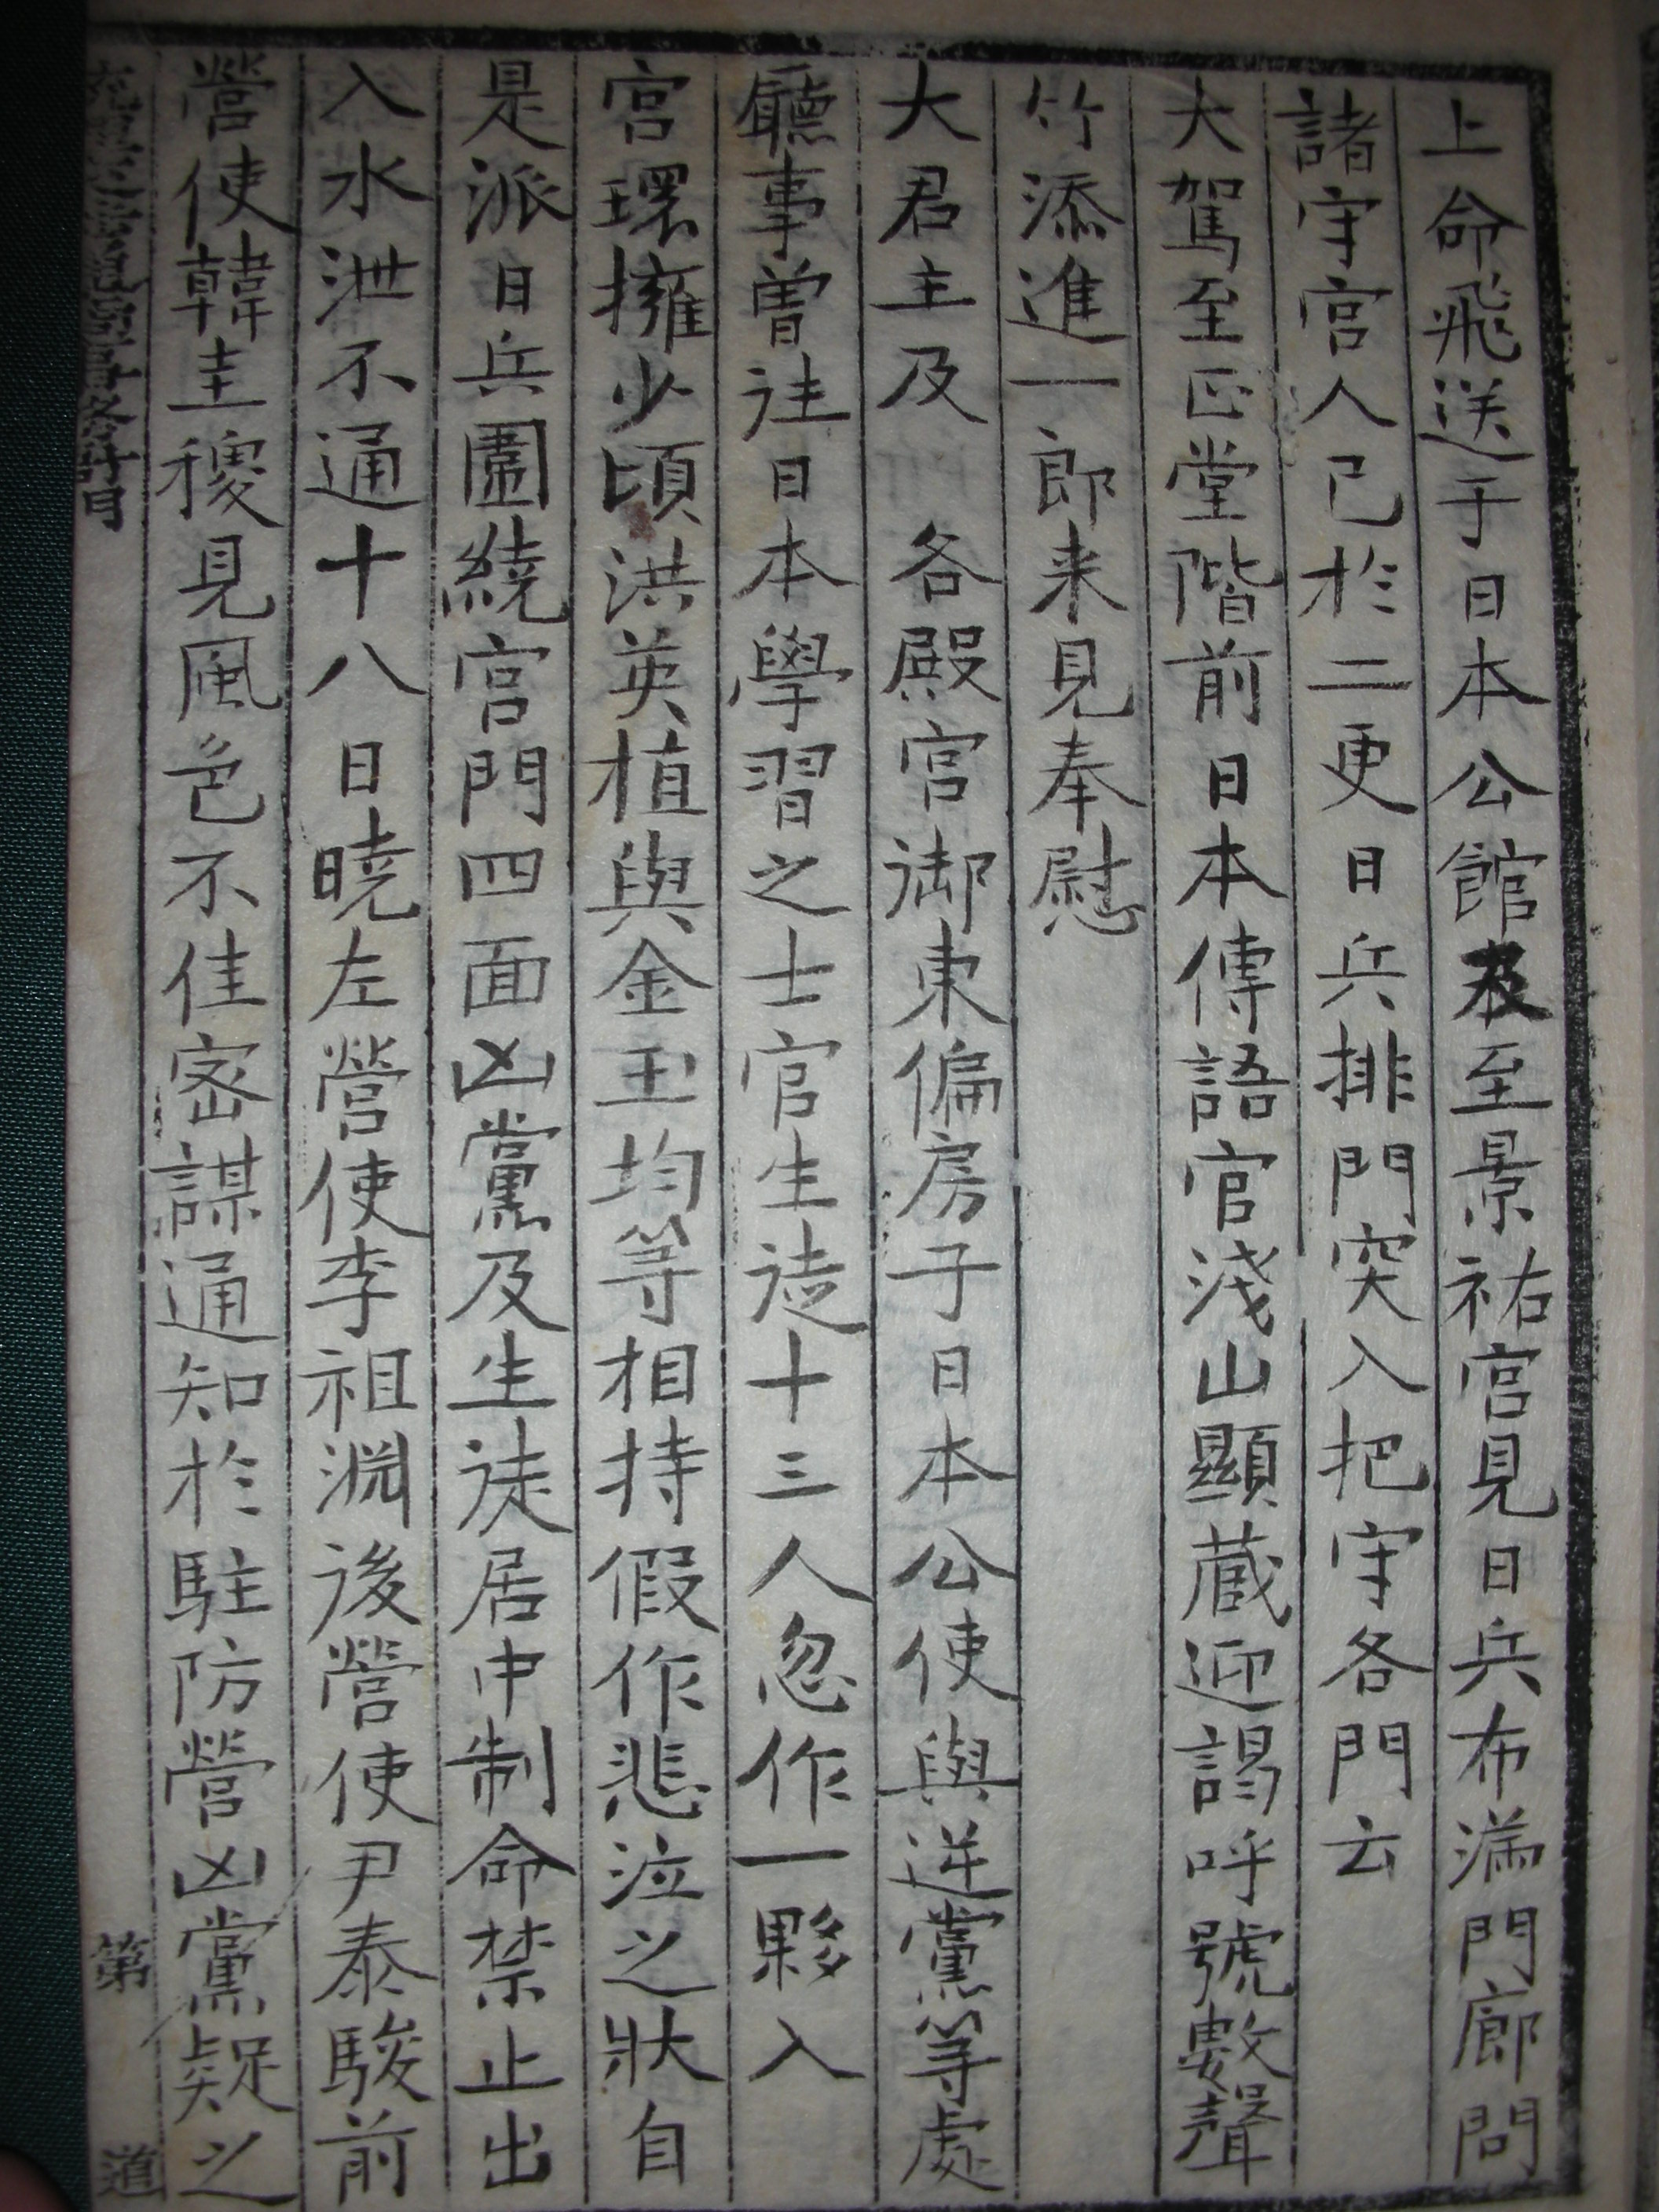 上命飛送于日本公館及至景祐宮見日兵布滿門廊問
諸守宮人已於二更日兵排門突入把守各門云
大駕至正堂階前日本傳語官淺山顯藏迎謁呼號數聲
竹添進一郎来見奉慰
大君主及 各殿宮御東偏房子日本公使與逆黨等處
廳事曽往日本學習之士官生徒十三人忽作一夥入
宮環擁少頃洪英植與金玉均等相持假作悲泣之狀自
是派日兵圍繞宮門四面凶黨及生徒居中制命禁止出
入水泄不通十八日曉左營使李祖渊後營使尹泰駿前
營使韓圭稷見風色不佳密謀通知於駐防營凶黨疑之
第 道